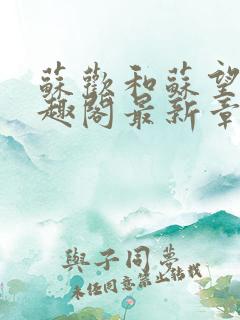 蘇歡和蘇望
趣閣最新章
與子同夢
未經同意禁止轉載